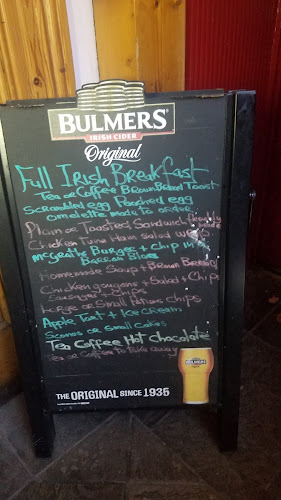 BULMERS
IRISH CIDER
Original
Full Irish Breakfast
Tea or Coffee Brown Bread Toast
Scrambled egg Poached egg
omelette made to order
Plain or Toasted Sandwich freshly
Chicken Tuna Ham salad wraps
McGrath's Burger + chip in a
Homemade Soup + Brown Bread
Chicken goujons + Salad + Chips
Sausages + Chips
Large or Small Portions chips
Apple Tart + Ice cream
Scones or Small Cakes
Tea Coffee Hot Chocolate
Tea or Coffee to Take away
BULMERS
THE ORIGINAL SINCE 1935